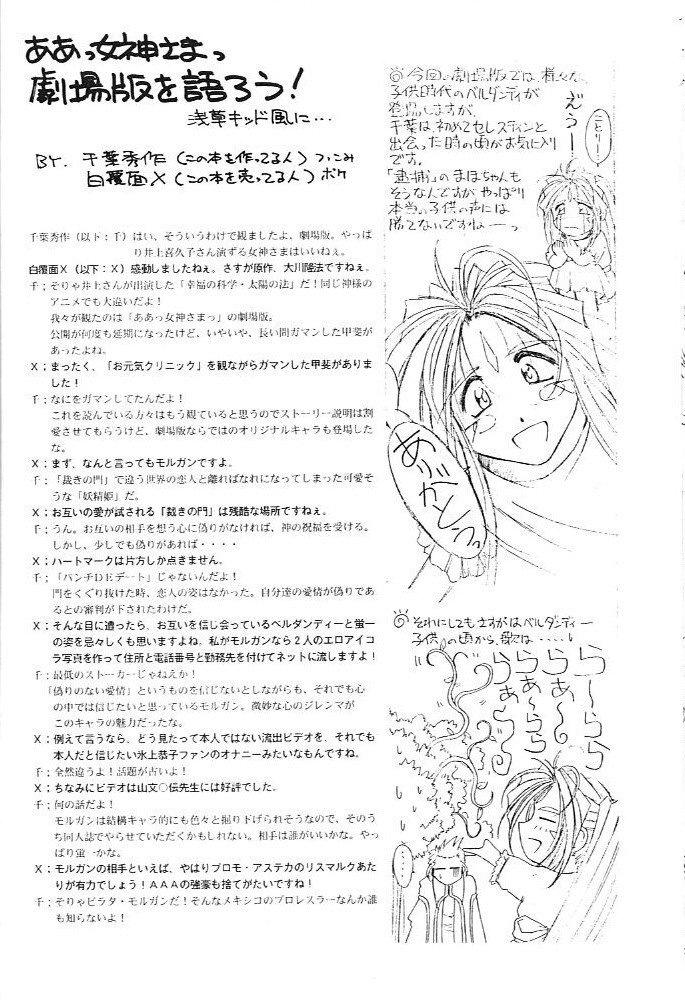 ああっ女神さまっ
劇場版を語ろう!
浅草キッド風に…
BY. 千葉秀作(この本を作ってる人)つっこみ
白覆面X(この本を売ってる人)ボケ
千葉秀作(以下:千)はい、そういうわけで観ましたよ、劇場版。やっぱ
り井上喜久子さん演ずる女神さまはいいねぇ。
白覆面X(以下:X)感動しましたねぇ。さすが原作、大川隆法ですねぇ。
千;そりゃ井上さんが出演した「幸福の科学・太陽の法」だ!同じ神様の
アニメでも大違いだよ!
我々が観たのは「ああっ女神さまっ」の劇場版。
公開が何度も延期になったけど、いやいや、長い間ガマンした甲斐が
あったよね。
X;まったく、「お元気クリニック」を観ながらガマンした甲斐がありま
した!
千;なにをガマンしてたんだよ!
これを読んでいる方々はもう観ていると思うのでストーリー説明は割
愛させてもらうけど、劇場版ならではのオリジナルキャラも登場した
な。
X;まず、なんと言ってもモルガンですよ。
千;「裁きの門」で違う世界の恋人と離ればなれになってしまった可愛そ
うな「妖精姫」だ。
X;お互いの愛が試される「裁きの門」は残酷な場所ですねぇ。
千;うん。お互いの相手を想う心に偽りがなければ、神の祝福を受ける。
しかし、少しでも偽りがあれば・・・・
X;ハートマークは片方しか点きません。
千;「パンチDEデート」じゃないんだよ!
門をくぐり抜けた時、恋人の姿はなかった。自分達の愛情が偽りであ
るとの審判が下されたわけだ。
X;そんな目に遭ったら、お互いを信じ会っているベルダンディーと蛍一
の姿を忌々しくも思いますよね。私がモルガンなら2人のエロアイコ
ラ写真を作って住所と電話番号と勤務先を付けてネットに流しますよ!
千;最低のストーカーじゃねえか!
「偽りのない愛情」というものを信じないとしながらも、それでも心
の中では信じたいと思っているモルガン。微妙な心のジレンマが
このキャラの魅力だったな。
X;例えて言うなら、どう見たって本人ではない流出ビデオを、それでも
本人だと信じたい氷上恭子ファンのオナニーみたいなもんですね。
千;全然違うよ!話題が古いよ!
X;ちなみにビデオは山文○伝先生には好評でした。
千;何の話だよ!
モルガンは結構キャラ的にも色々と掘り下げられそうなので、そのう
ち同人誌でやらせていただくかもしれない。相手は誰がいいかな。やっ
ぱり蛍一かな。
X;モルガンの相手といえば、やはりプロモ・アステカのリスマルクあた
りが有力でしょう!AAAの強豪も捨てがたいですね!
千;そりゃピラタ・モルガンだ!そんなメキシコのプロレスラーなんか誰
も知らないよ!
◎今回の劇場版では、様々な
子供時代のベルダンディが
登場しますが、
千葉は、初めてセレスティンと
出会った時の頃がお気に入り
です。
「逮捕」のまほちゃんも
そうなんですが、やっぱり
本当の子供の声には
勝てないですねーーっ
ことりー…
えうー
ありがとうっ
◎それにしてもさすがはベルダンディー
子供の頃から、歌は・・・・・!
らーらら
らあ〜
らあ〜らら
らぁ
……